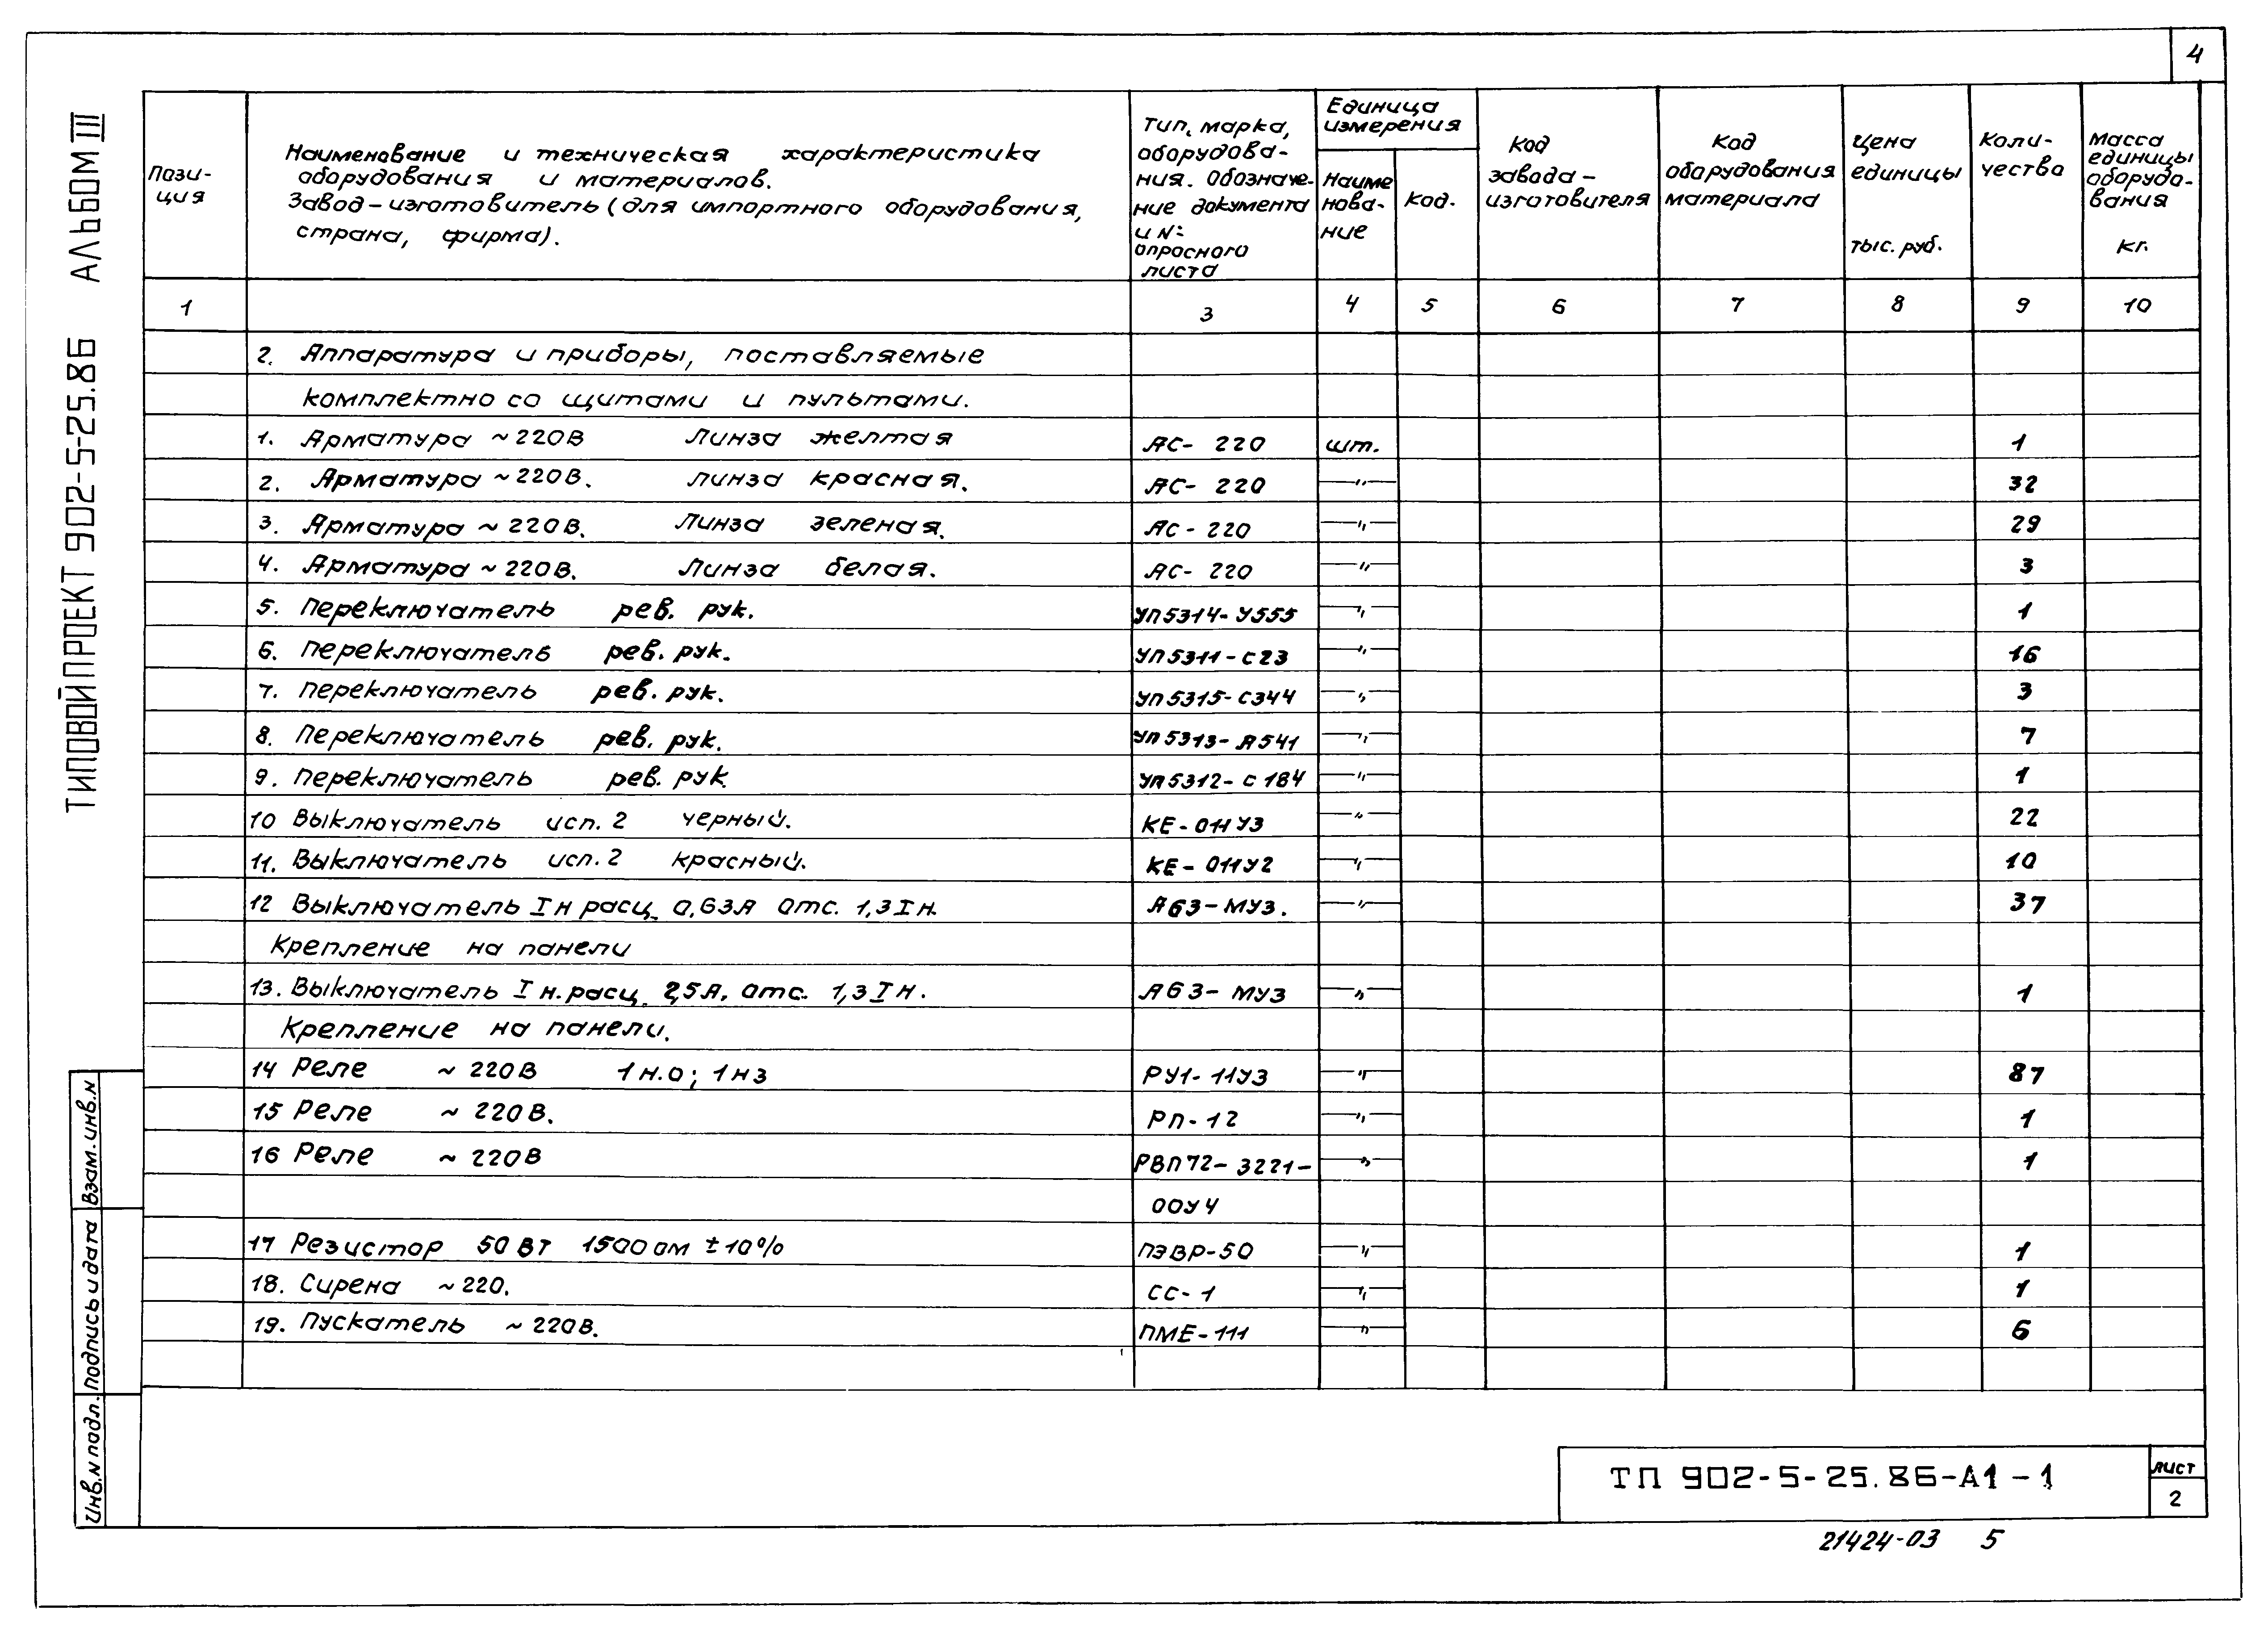 4
ТИПОВОЙ ПРОЕКТ 902-5-25.86 АЛЬБОМ III
Пози-
ция
Наименование и техническая характеристика
оборудования и материалов.
Завод-изготовитель (для импортного оборудования,
страна, фирма).
Тип, марка,
оборудова-
ния. Обозначе-
ние документа
и №
опросного
листа
Единица
измерения
Наиме
нова-
ние
Код.
Код
завода-
изготовителя
Код
оборудования
материала
Цена
единицы
тыс. руб.
Коли-
чество
Масса
единицы
оборудо-
вания
кг.
1 3 4 5 6 7 8 9 10
2. Аппаратура и приборы, поставляемые
комплектно со щитами и пультами.
1. Арматура ~220В Линза желтая АС-220 шт. 1
2. Арматура ~220В. линза красная. АС-220 —"— 32
3. Арматура ~220В. Линза зеленая. АС-220 —"— 29
4. Арматура ~220В. Линза белая. АС-220 —"— 3
5. Переключатель рев. рук. УП5314-У555 —"— 1
6. Переключатель рев. рук. УП5311-С23 —"— 16
7. Переключатель рев. рук. УП5315-С344 —"— 3
8. Переключатель рев. рук. УП5313-А541 —"— 7
9. Переключатель рев. рук УП5312-С184 —"— 1
10 Выключатель исп. 2 черный. КЕ-011У3 —"— 22
11. Выключатель исп. 2 красный. КЕ-011У2 —"— 10
12 Выключатель Iн расц. 0,63А отс. 1,3Iн. А63-МУ3. —"— 37
Крепление на панели
13. Выключатель Iн.расц. 2,5А. отс. 1,3Iн. А63-МУ3 —"— 1
Крепление на панели.
14 Реле ~220В 1н.о; 1нз РУ1-11У3 —"— 87
15 Реле ~220В. РП-12 —"— 1
16 Реле ~220В РВП72-3221- —"— 1
00У4
17 Резистор 50Вт 1500ом ±10% ПЭВР-50 —"— 1
18. Сирена ~220. СС-1 —"— 1
19. Пускатель ~220В. ПМЕ-111 —"— 6
Инв.N подл. Подпись и дата Взам.инв.N
ТП 902-5-25.86-А1-1
лист
2
21424-03 5